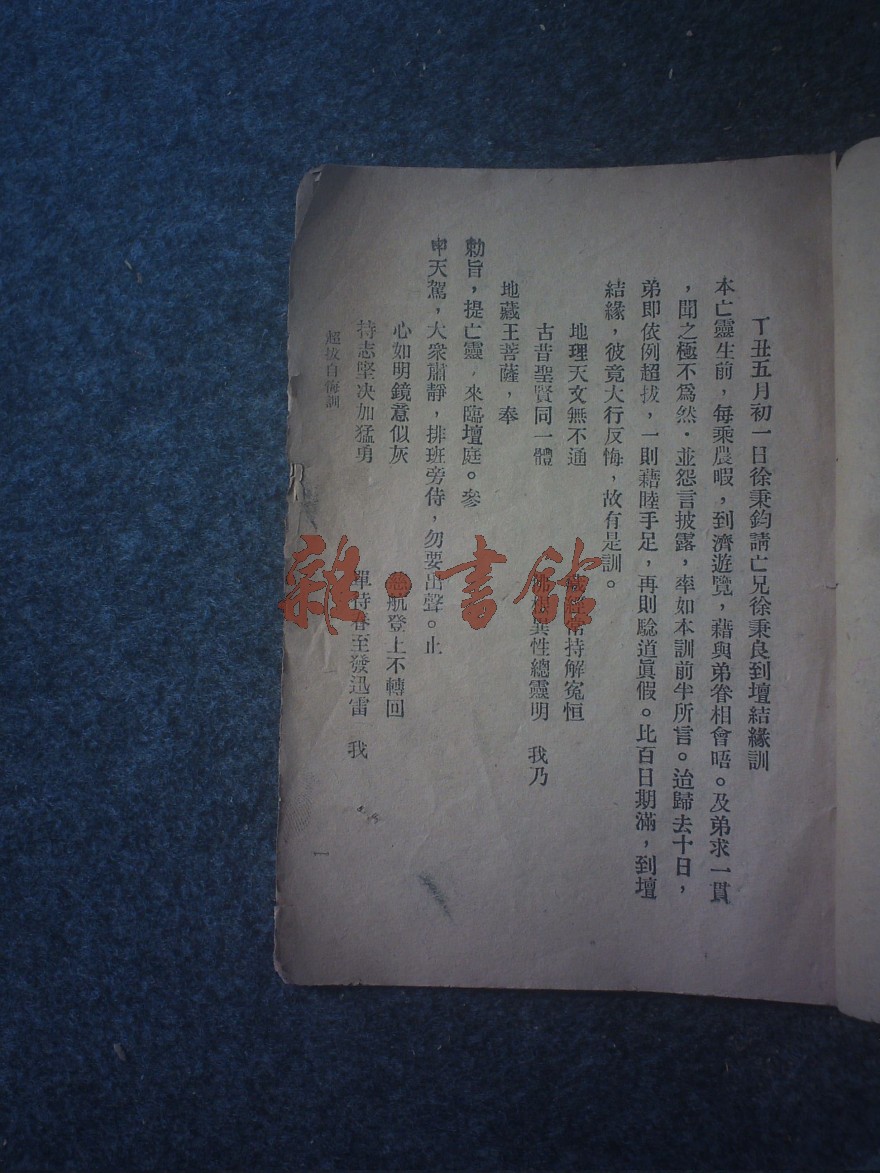 丁丑五月初一日徐秉鈞請亡兄徐秉良到壇結緣訓
本亡靈生前，每乘農暇，到濟遊覽，藉與弟眷相會晤。及弟求一貫
，聞之極不爲然・並怨言披露，率如本訓前半所言。迨歸去十日，
弟即依例超拔，一則藉睦手足，再則騐道眞假。比百日期滿，到壇
結緣，彼竟大行反悔，故有是訓。
地理天文無不通 常持解冤恒
古昔聖賢同一體 異性總靈明 我乃
地藏王菩薩，奉
勅旨，提亡靈，來臨壇庭。參
申天駕，大衆肅靜，排班旁侍，勿要出聲。止
心如明鏡意似灰 航登上不轉回
持志堅决加猛勇 單待春至發迅雷 我
超拔自悔訓
一
雜・書館